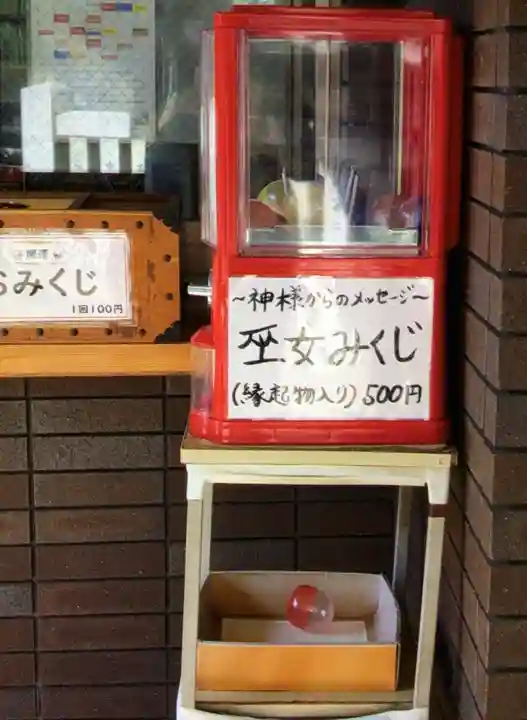 開運
おみくじ
1回100円
～神様からのメッセージ～
巫女みくじ
(縁起物入り) 500円